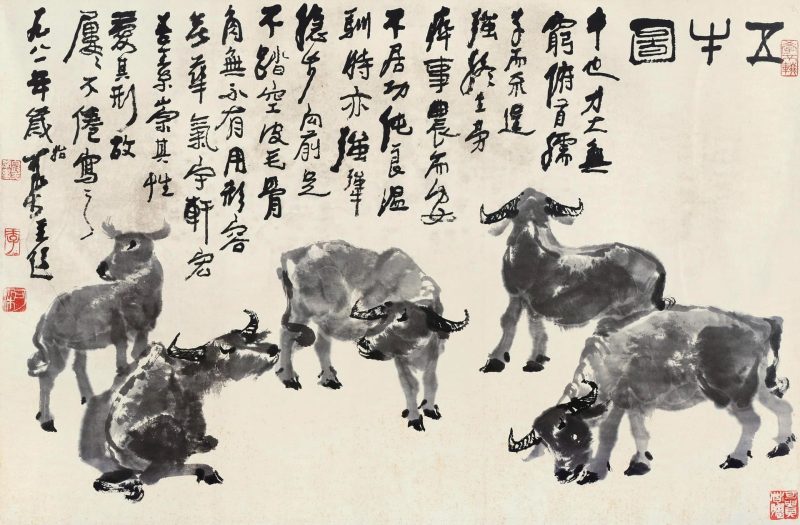 五牛圖
牛也力大無
窮俯首孺
子而不逞
強終生勞
瘁事農而安
不居功純良溫
馴時亦強犟
穩步向前足
不踏空皮毛骨
角無不有用形容
無華氣宇軒宏
吾素崇其性
愛其形故
屢々不倦寫之
年歲始可染題